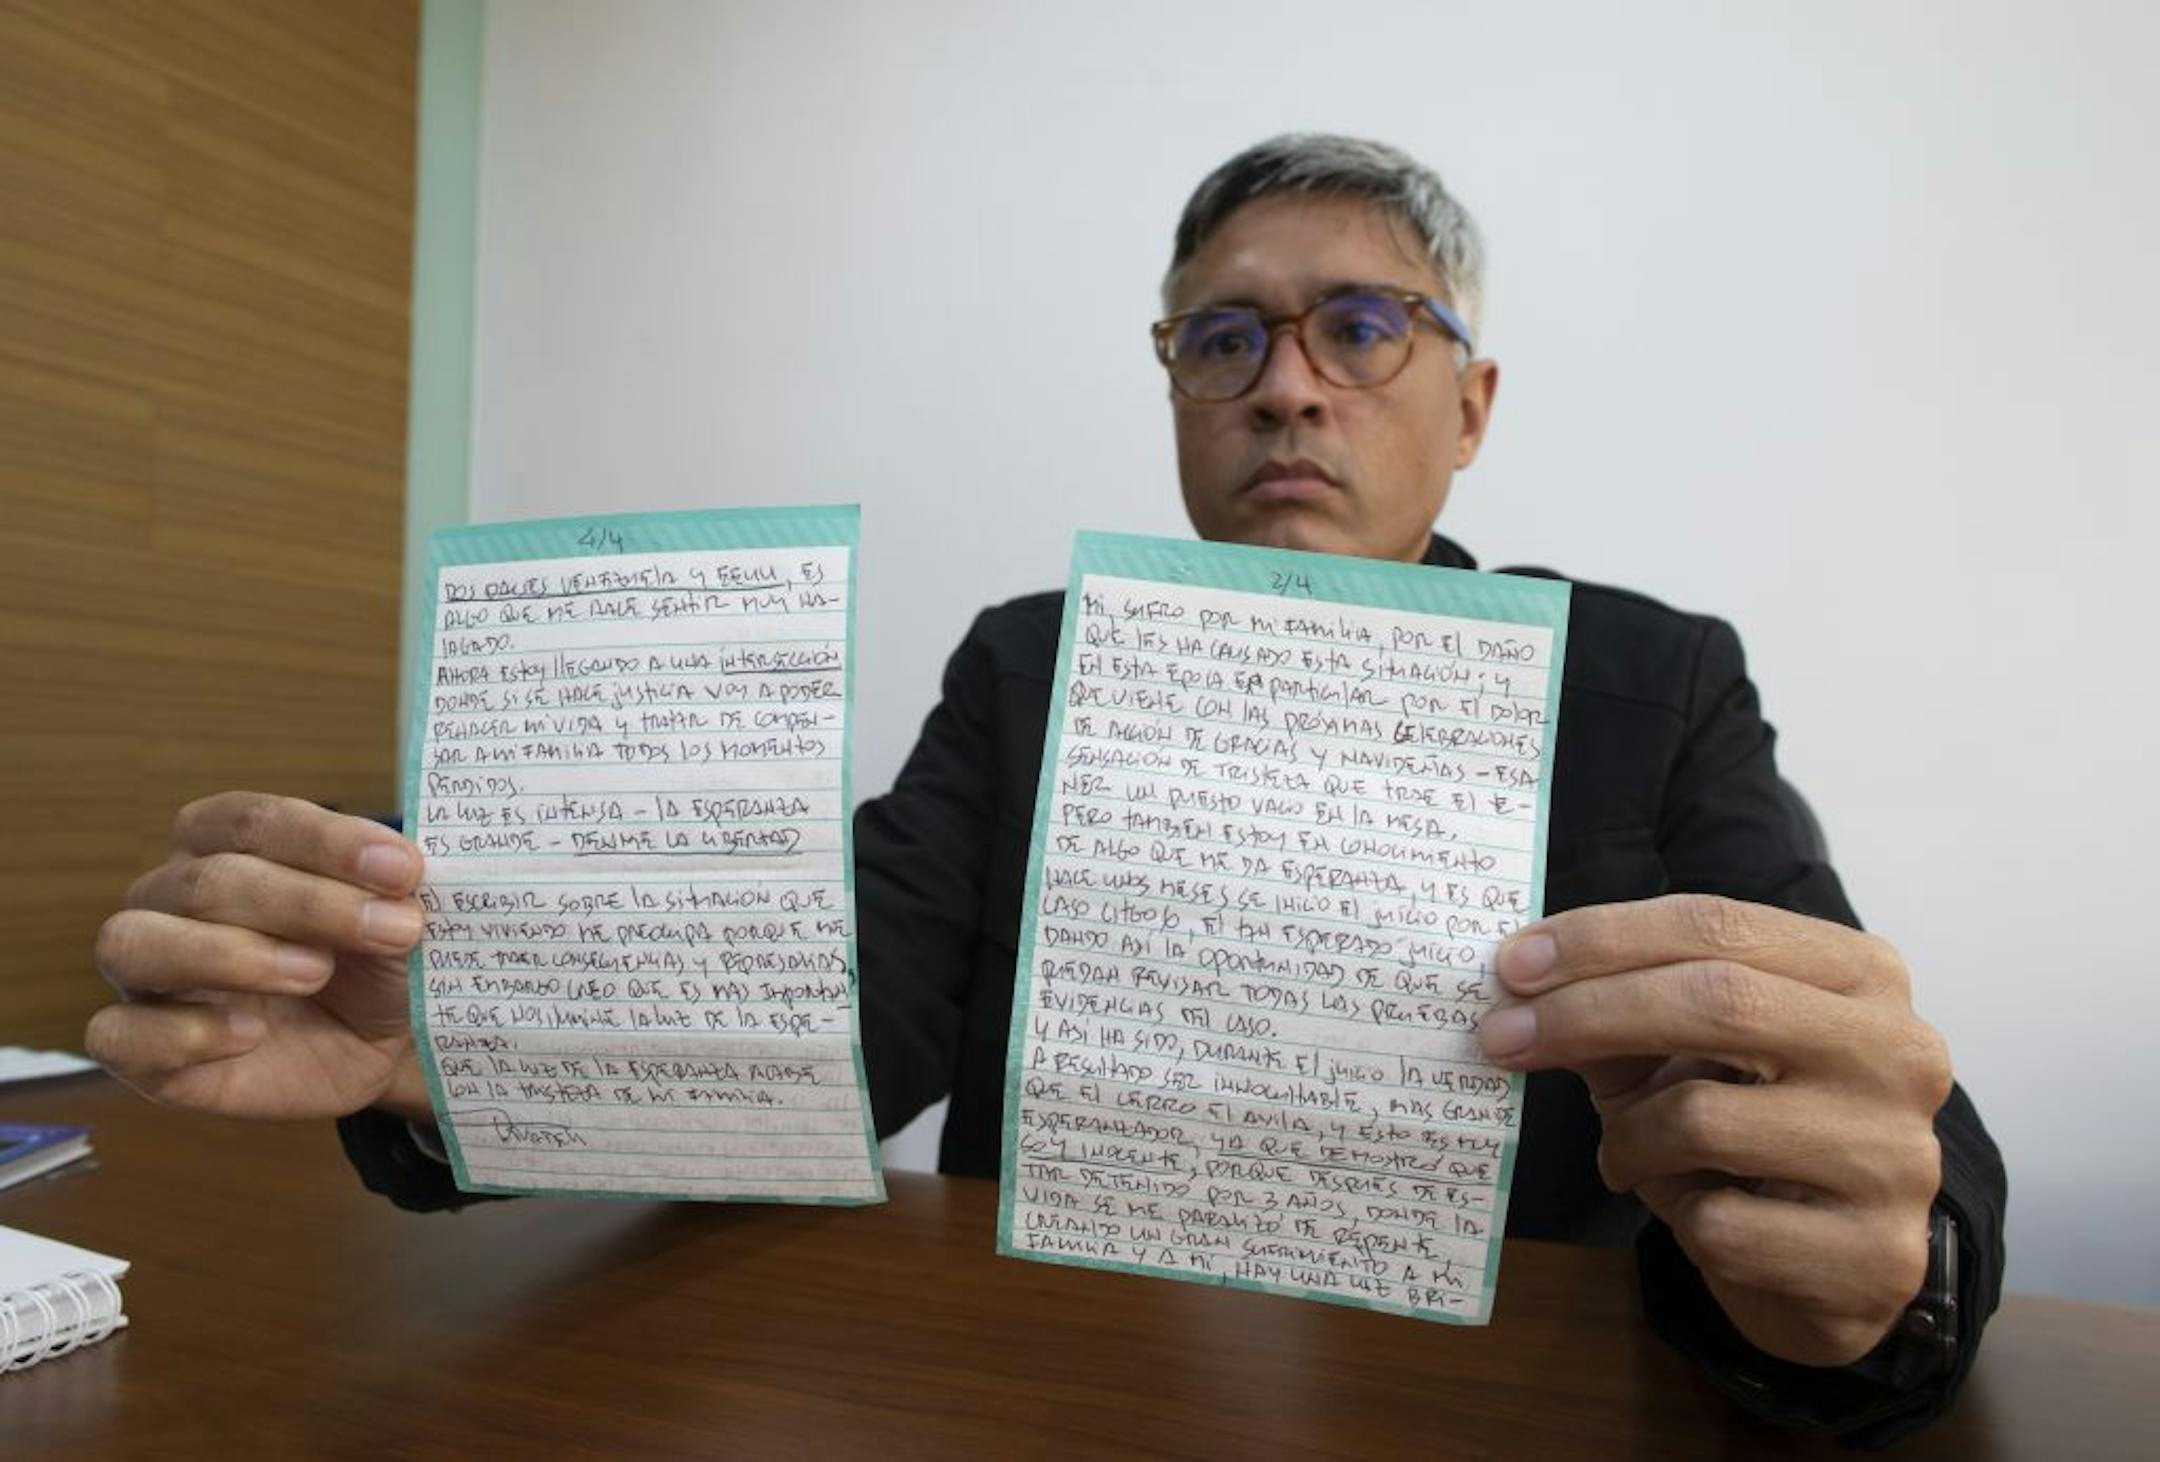 4/4
DOS PAISES VENEZUELA Y EEUU, ES
ALGO QUE ME HACE SENTIR MUY HA-
LAGADO.
AHORA ESTOY LLEGANDO A UNA INTERSECCIÓN
DONDE SI SE HACE JUSTICIA VOY A PODER
REHACER MI VIDA Y TRATAR DE COMPEN-
SAR A MI FAMILIA TODOS LOS MOMENTOS
PERDIDOS.
LA LUZ ES INTENSA - LA ESPERANZA
ES GRANDE - DENME LA LIBERTAD
EL ESCRIBIR SOBRE LA SITUACIÓN QUE
ESTOY VIVIENDO ME PREOCUPA PORQUE ME
PUEDE TRAER CONSECUENCIAS Y REPRESALIAS,
SIN EMBARGO CREO QUE ES MAS IMPORTAN
TE QUE NOS ILUMINE LA LUZ DE LA ESPE-
RANZA.
QUE LA LUZ DE LA ESPERANZA ACABE
CON LA TRISTEZA DE MI FAMILIA.
2/4
MI, SUFRO POR MI FAMILIA, POR EL DAÑO
QUE LES HA CAUSADO ESTA SITUACIÓN; Y
EN ESTA EPOCA EN PARTICULAR POR EL DOLOR
QUE VIENE CON LAS PRÓXIMAS CELEBRACIONES
DE ACCIÓN DE GRACIAS Y NAVIDEÑAS - ESA
SENSACIÓN DE TRISTEZA QUE TRAE EL TE-
NER UN PUESTO VACIO EN LA MESA.
PERO TAMBIEN ESTOY EN CONOCIMIENTO
DE ALGO QUE ME DA ESPERANZA, Y ES QUE
HACE UNOS MESES SE INICIO EL JUICIO POR EL
CASO CITGO 6, EL TAN ESPERADO JUICIO,
DANDO ASI LA OPORTUNIDAD DE QUE SE
PUEDAN REVISAR TODAS LAS PRUEBAS
EVIDENCIAS DEL CASO.
Y ASI HA SIDO, DURANTE EL JUICIO LA VERDAD
A RESULTADO SER INNOCULTABLE, MAS GRANDE
QUE EL CERRO EL AVILA, Y ESTO ES MUY
ESPERANZADOR, YA QUE DEMOSTRÓ QUE
SOY INOCENTE, PORQUE DESPUES DE ES-
TAR DETENIDO POR 3 AÑOS, DONDE LA
VIDA SE ME PARALIZÓ DE REPENTE,
CREANDO UN GRAN SUFRIMIENTO A MI
FAMILIA Y A MI, HAY UNA LUZ BRI-